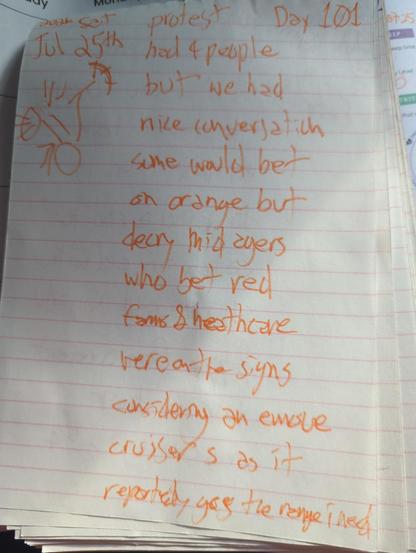 sat protest Day 101
Jul 25th had 4 people
but we had
nice conversation
some would bet
on orange but
decry mid agers
who bet red
farms & healthcare
were on the signs
considering an emove
cruiser s as it
reportedly gets the range i need